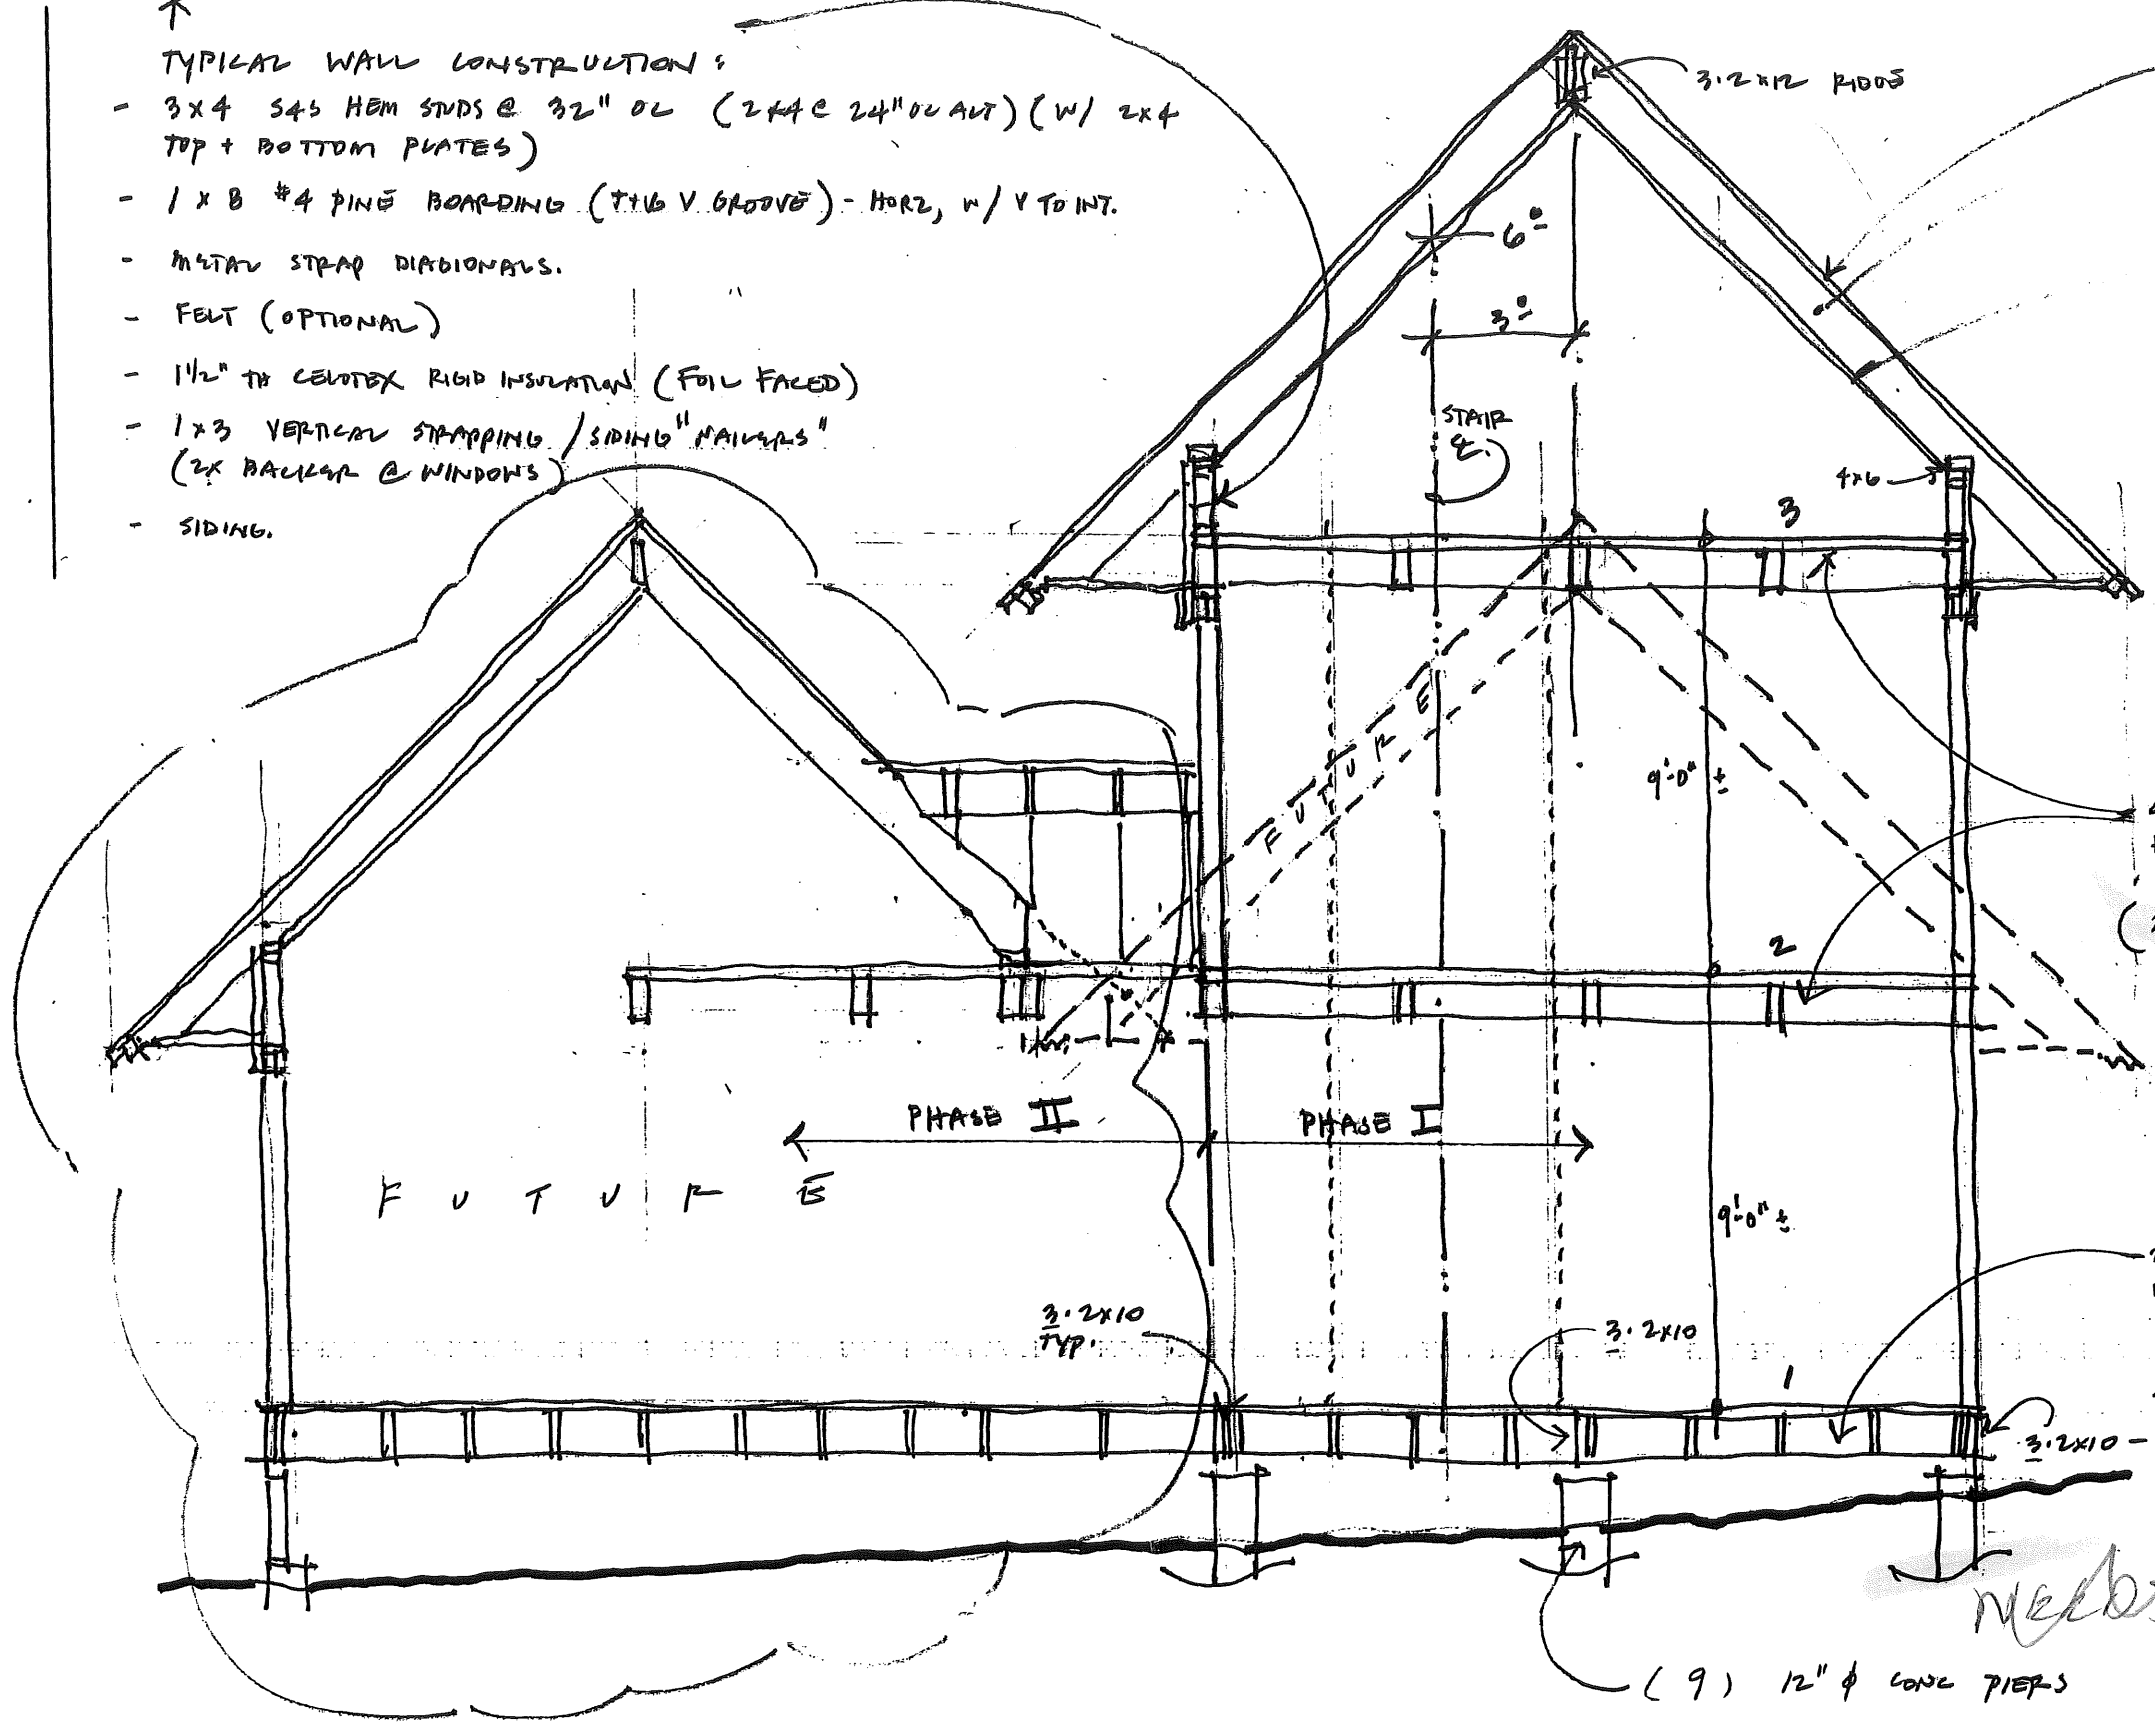 TYPICAL WALL CONSTRUCTION:
- 3x4 S4S HEM STUDS @ 32" OC (2x4 @ 24" OC ALT) (W/ 2x4
TOP + BOTTOM PLATES)
- 1 x 8 #4 PINE BOARDING (T+G V GROOVE) - HORZ, W/ V TO INT.
- METAL STRAP DIAGIONALS.
- FELT (OPTIONAL)
- 1 1/2" TH CELOTEX RIGID INSULATION (FOIL FACED)
- 1x3 VERTICAL STRAPPING / SIDING "NAILERS"
(2x BACKER @ WINDOWS)
- SIDING.
3·2x12 RIDGE
6°
3°
STAIR
℄.
4x6
3
FUTURE
9'-0" ±
2
PHASE II
PHASE I
FUTURE
9'-0" ±
3·2x10
TYP.
3·2x10
1
3·2x10 -
(9) 12" ϕ CONC PIERS